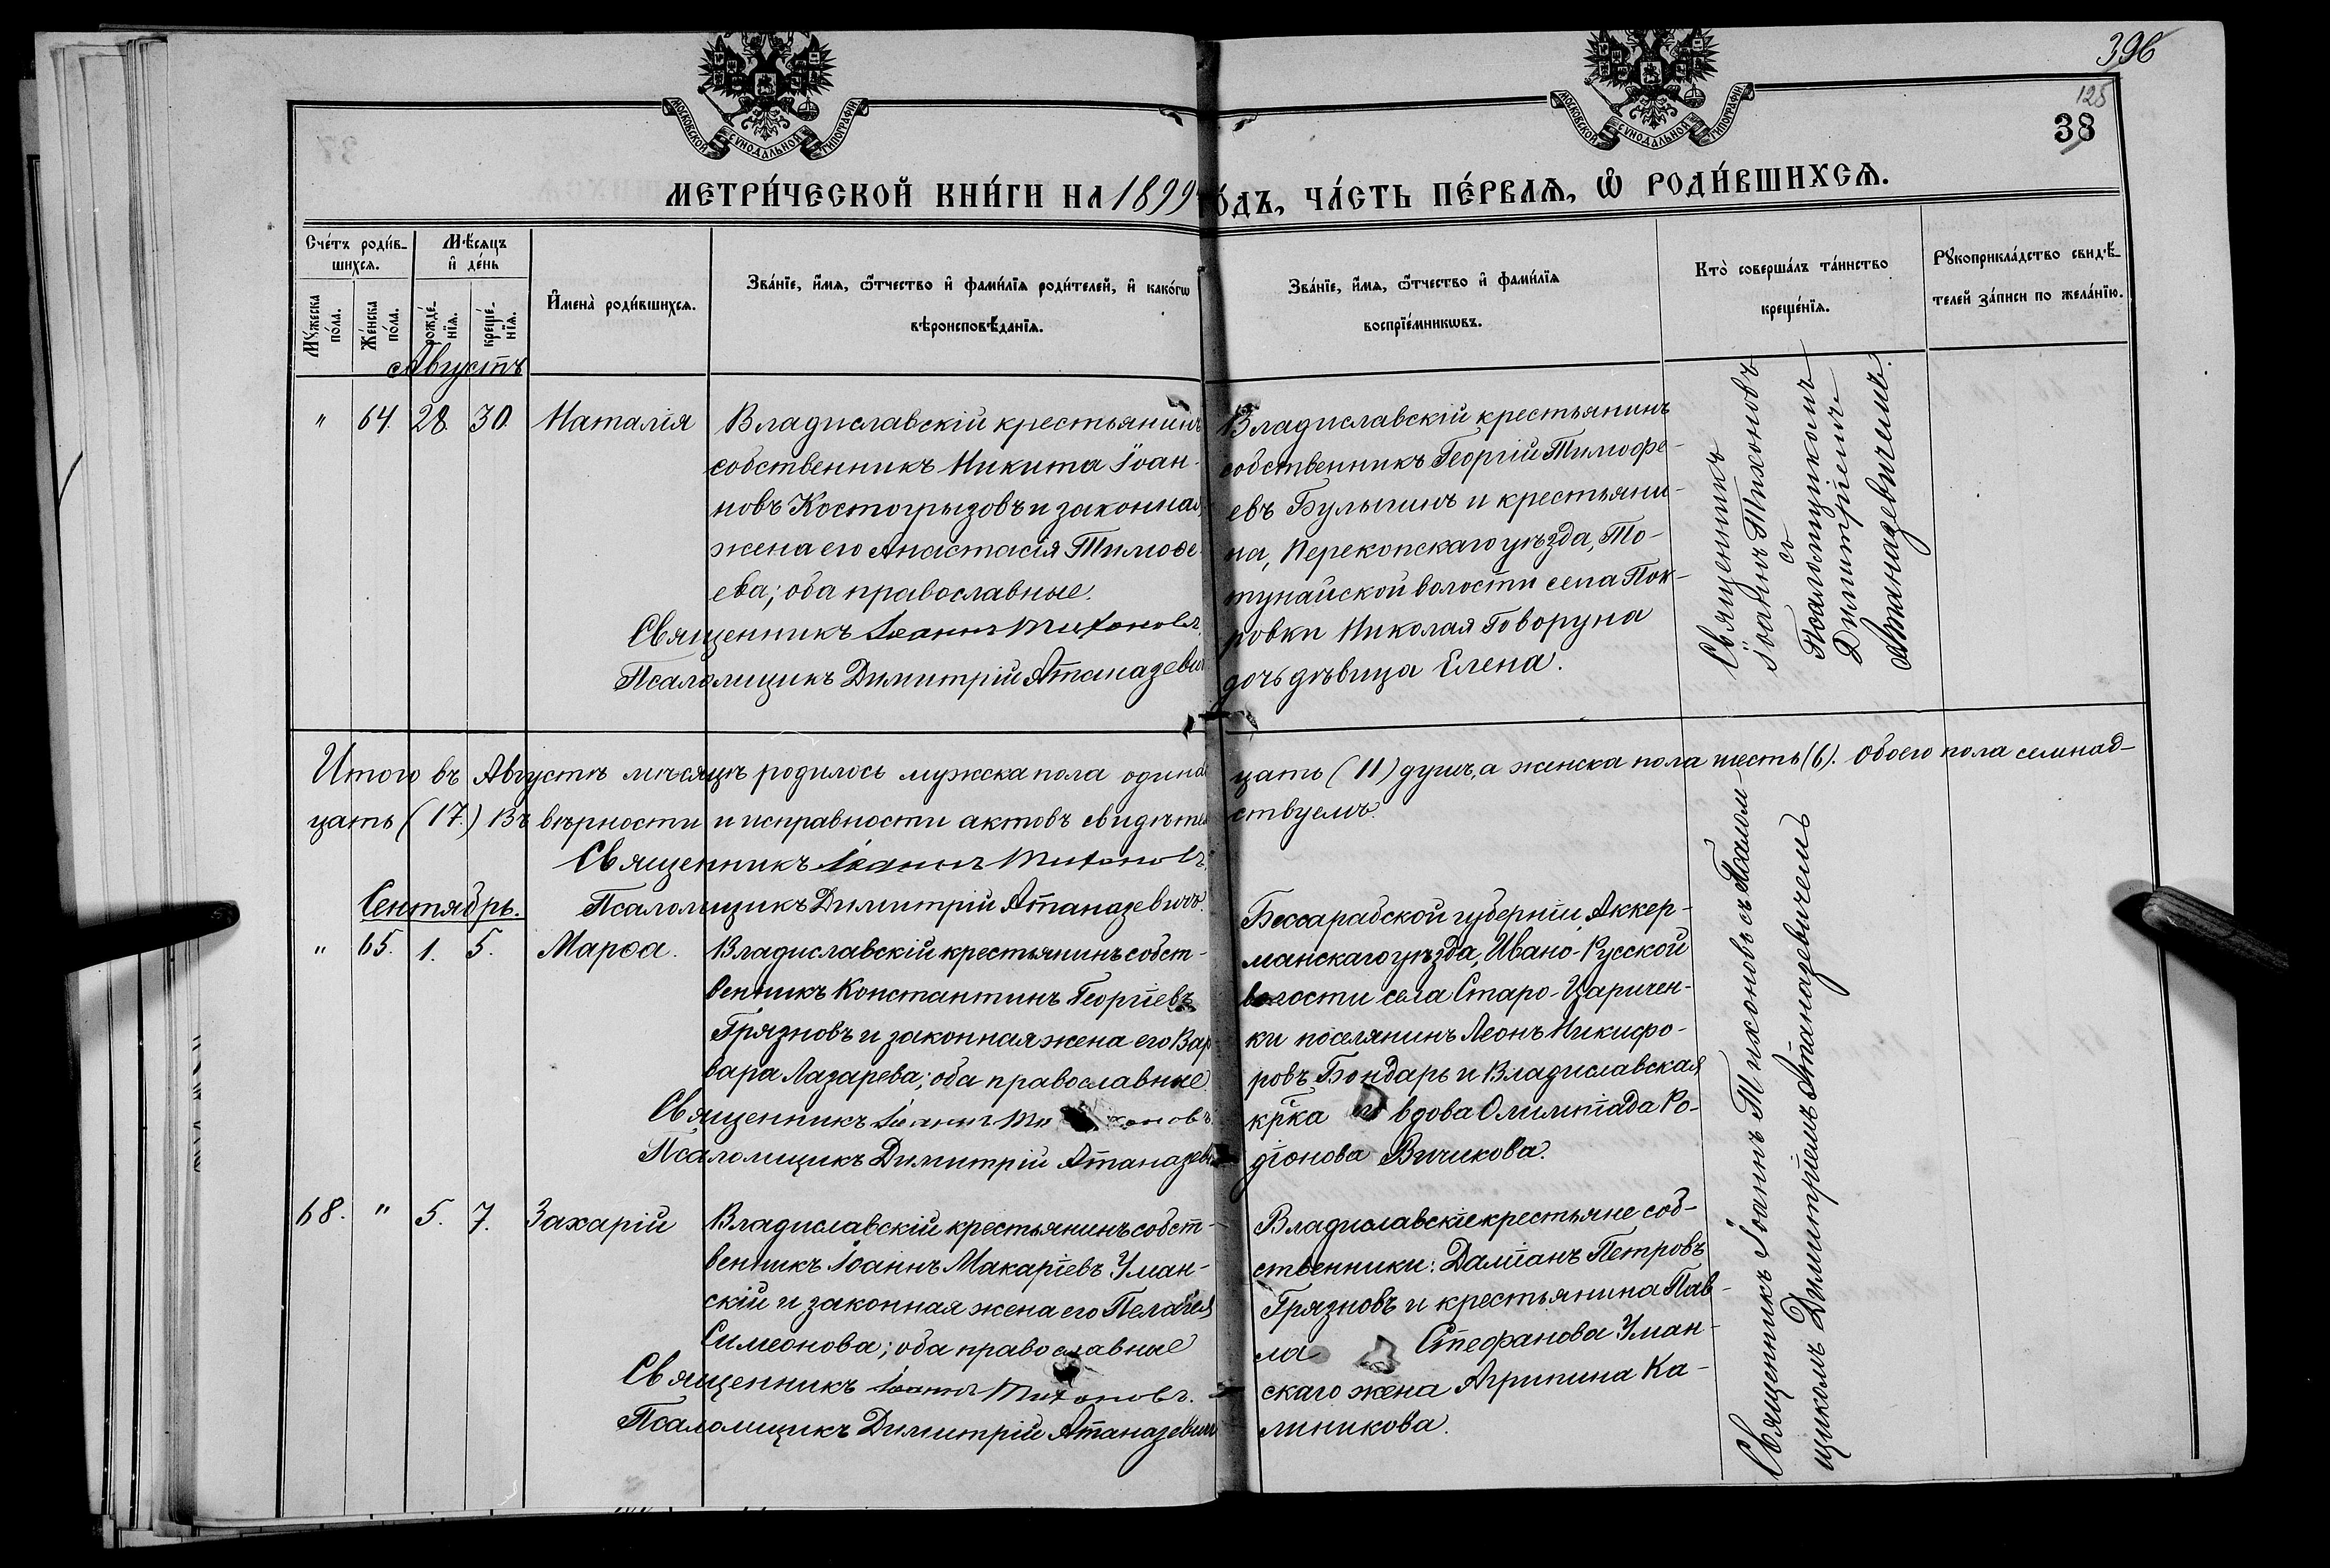 396
125
38
МОСКОВСКОЙ СѴНОДАЛЬНОЙ ТИПОГРАФІИ
МОСКОВСКОЙ СѴНОДАЛЬНОЙ ТИПОГРАФІИ
МЕТРИ́ЧЕСКОЙ КНИ́ГИ НА 1899 ГО́ДЪ, ЧА́СТЬ ПЕ́РВАѦ, Ѽ РОДИ́ВШИХСѦ.
Сче́тъ роди́в-
шихсѧ.
Мѣ́сѧцъ
и҆ де́нь
Мꙋ́жеска
по́ла.
Же́нска
по́ла.
рожде́-
нїѧ.
креще́-
нїѧ.
И҆мена̀ роди́вшихсѧ.
Зва́нїе, и҆́мѧ, ѻ҆́тчество и҆ фами́лїѧ роди́телей, и҆ како́гѡ
вѣроисповѣ́данїѧ.
Зва́нїе, и҆́мѧ, ѻ҆́тчество и҆ фами́лїѧ
воспрїе́мникѡвъ.
Кто̀ соверша́лъ та́инство
креще́нїѧ.
Рꙋкоприкла́дство свидѣ́-
телей за́писи по жела́нїю.
Августъ
" 64. 28. 30. Наталія
Владиславскій крестьянинъ
собственникъ Никита Іоан-
новъ Костогрызовъ и законная
жена его Анастасія Тимоѳе-
ева; оба православные.
Священникъ Іоаннъ Тихоновъ.
Псаломщикъ Димитрій Атаназевичъ
Владиславскій крестьянинъ
собственникъ Георгій Тимофе-
евъ Булыгинъ и крестьяни-
на, Перекопскаго уѣзда, То-
тунайской волости села Пок-
ровки Николая Говоруна
дочь дѣвица Елена.
Священникъ
Іоаннъ Тихоновъ
съ
Псаломщикомъ
Димитріемъ
Атаназевичемъ.
Итого въ Августѣ мѣсяцѣ родилось мужска пола одинад-
цать (11) душъ, а женска пола шесть (6). Обоего пола семнад-
цать (17.) Въ вѣрности и исправности актовъ свидѣтель-
ствуемъ.
Священникъ Іоаннъ Тихоновъ.
Псаломщикъ Димитрій Атаназевичъ.
Сентябрь.
" 65. 1. 5. Марѳа.
Владиславскій крестьянинъ собст-
венникъ Константинъ Георгіевъ
Грязновъ и законная жена его Вар-
вара Лазарева; оба православные.
Священникъ Іоаннъ Тихоновъ.
Псаломщикъ Димитрій Атаназевичъ
Бессарабской губерніи, Аккер-
манскаго уѣзда, Ивано-Русской
волости села Старо-Царичен-
ки поселянинъ Леонъ Никифо-
ровъ Бондарь и Владиславская
кр̃ка вдова Олимпіада Ро-
діонова Вичикова.
68. " 5. 7. Захарій
Владиславскій крестьянинъ собст-
венникъ Іоаннъ Макаріевъ Уман-
скій и законная жена его Пелагея
Симеонова; оба православные
Священникъ Іоаннъ Тихоновъ.
Псаломщикъ Димитрій Атаназевичъ
Владиславскіе крестьяне соб-
ственники: Даміанъ Петровъ
Грязновъ и крестьянина Пав-
ла Стефанова Уман-
скаго жена Агрипина Ка-
линикова.
Священникъ Іоаннъ Тихоновъ съ Псалом-
щикомъ Димитріемъ Атаназевичемъ